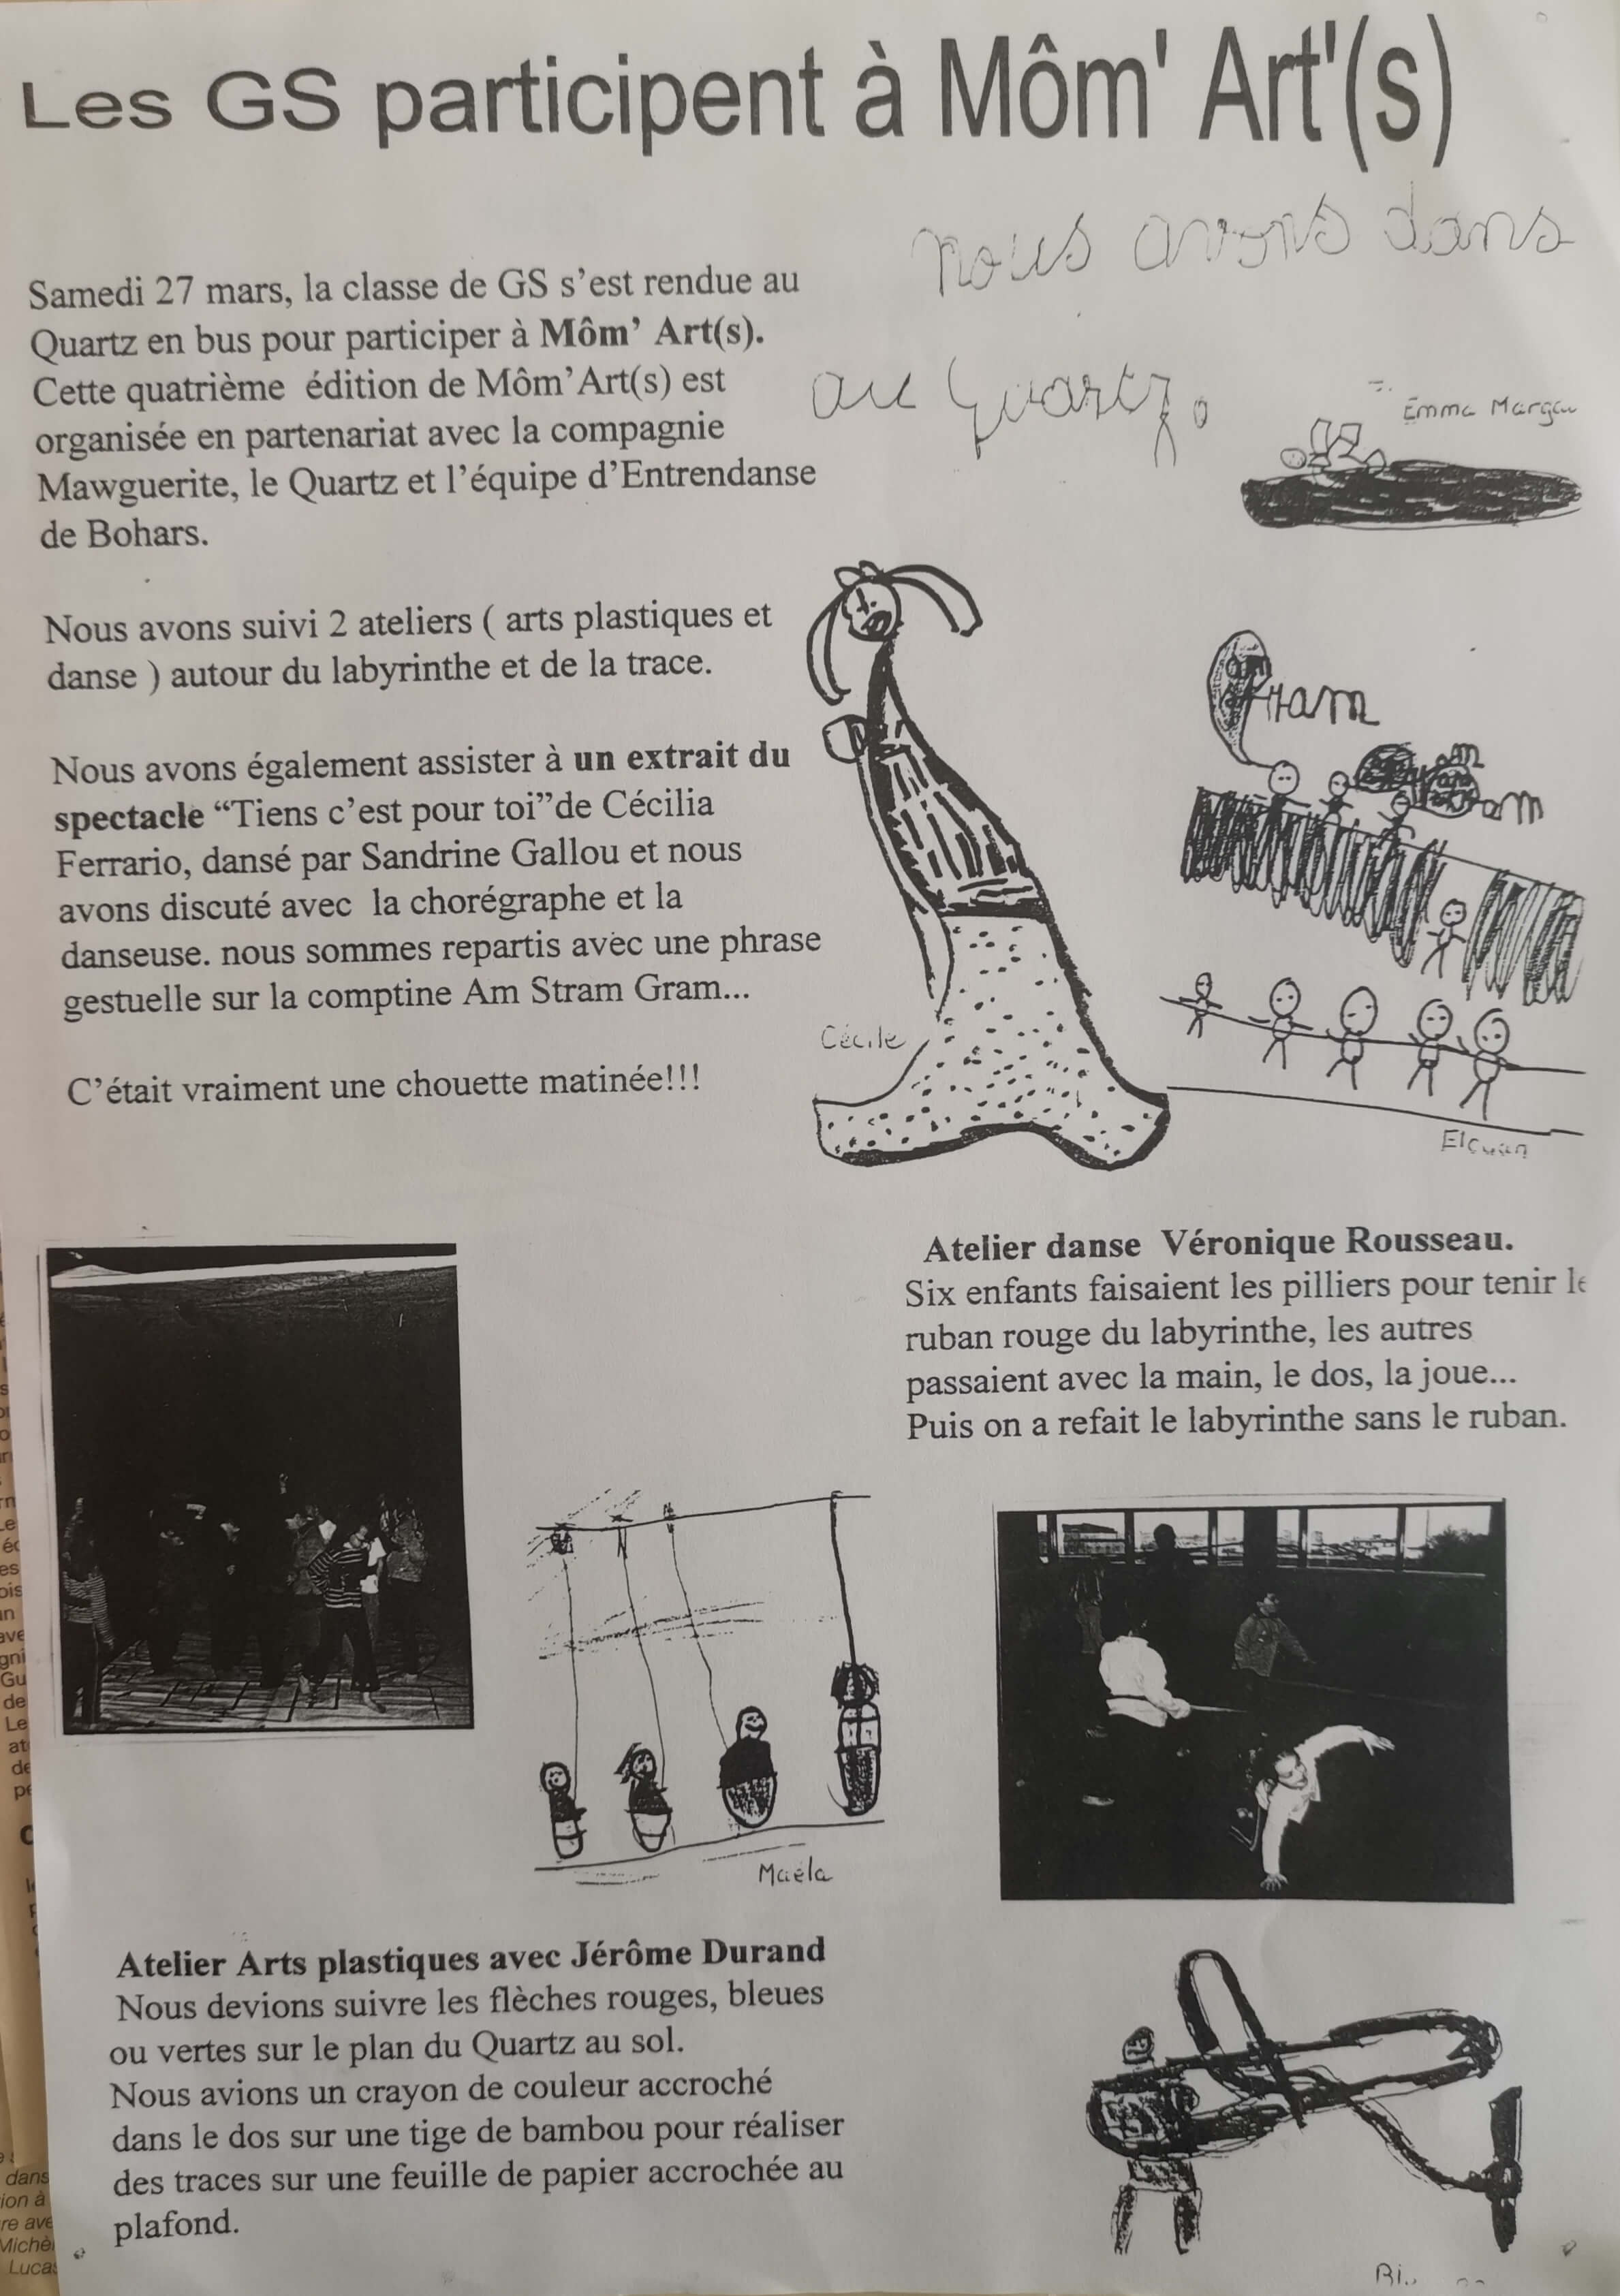 Les GS participent à Môm' Art'(s)
nous avons dans
au Quartz.
Emma
Samedi 27 mars, la classe de GS s’est rendue au
Quartz en bus pour participer à Môm’ Art(s).
Cette quatrième édition de Môm’Art(s) est
organisée en partenariat avec la compagnie
Mawguerite, le Quartz et l’équipe d’Entrendanse
de Bohars.
Nous avons suivi 2 ateliers ( arts plastiques et
danse ) autour du labyrinthe et de la trace.
Nous avons également assister à un extrait du
spectacle “Tiens c’est pour toi”de Cécilia
Ferrario, dansé par Sandrine Gallou et nous
avons discuté avec la chorégraphe et la
danseuse. nous sommes repartis avec une phrase
gestuelle sur la comptine Am Stram Gram...
C’était vraiment une chouette matinée!!!
Cécile
Atelier danse Véronique Rousseau.
Six enfants faisaient les pilliers pour tenir le
ruban rouge du labyrinthe, les autres
passaient avec la main, le dos, la joue...
Puis on a refait le labyrinthe sans le ruban.
Maëla
Atelier Arts plastiques avec Jérôme Durand
Nous devions suivre les flèches rouges, bleues
ou vertes sur le plan du Quartz au sol.
Nous avions un crayon de couleur accroché
dans le dos sur une tige de bambou pour réaliser
des traces sur une feuille de papier accrochée au
plafond.